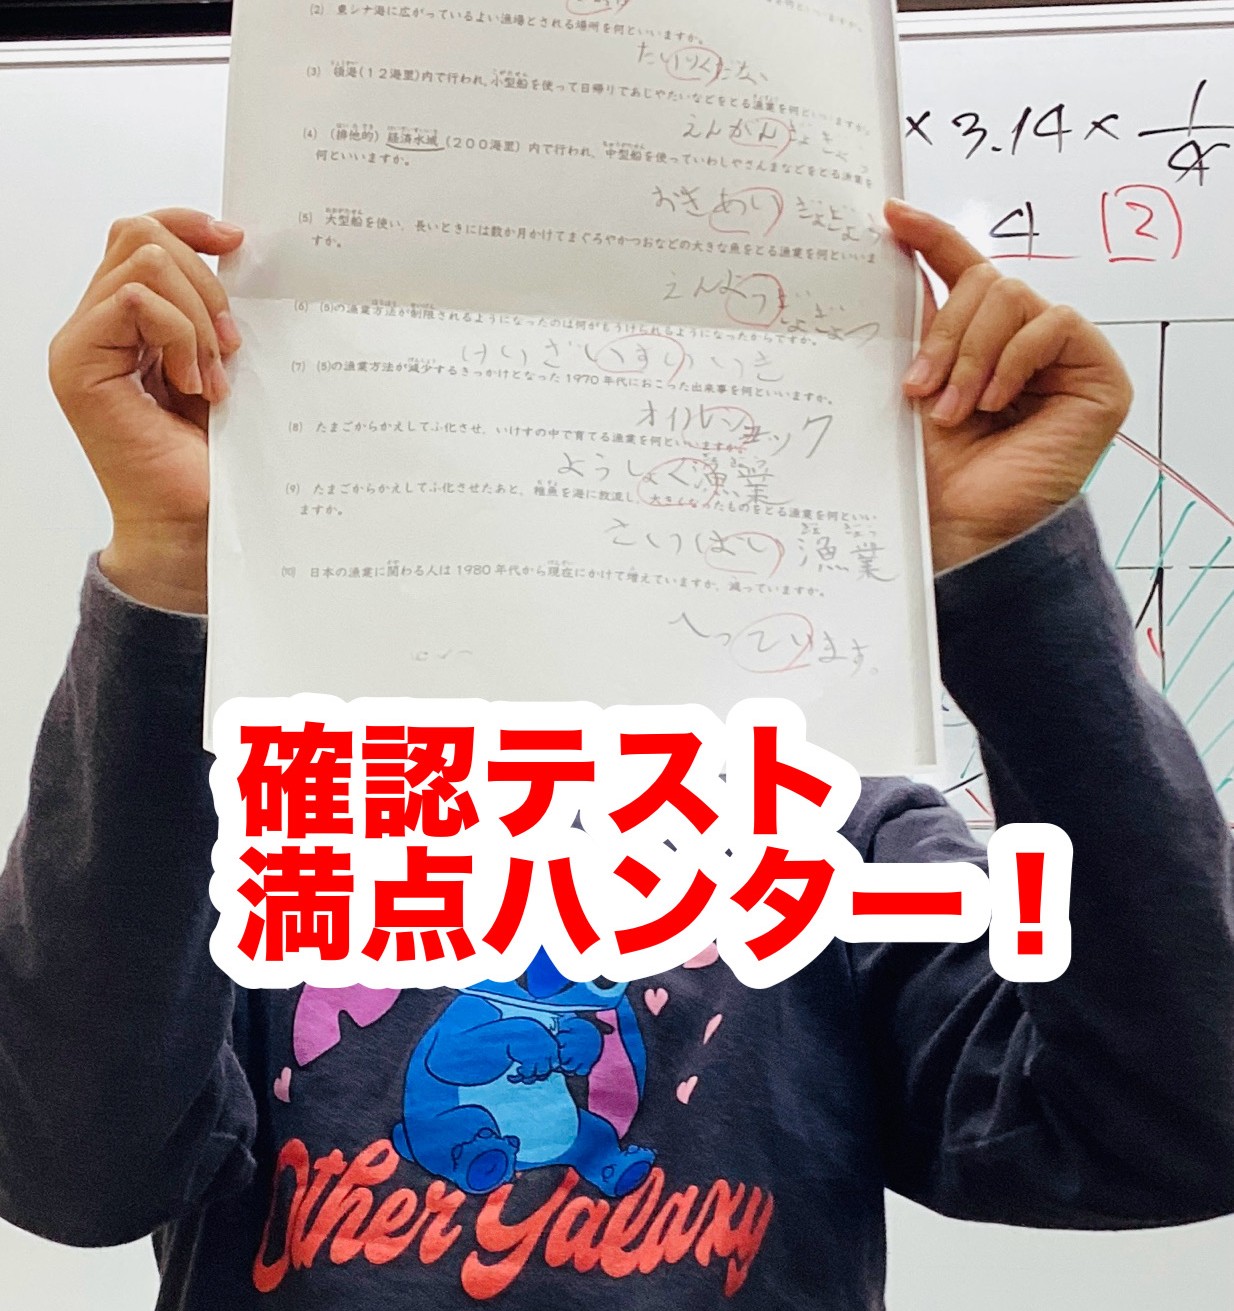 (2) 東シナ海に広がっているよい漁場とされる場所を何といいますか。
たいりくだな
(3) 領海(12海里)内で行われ、小型船を使って日帰りであじやたいなどをとる漁業を何といいますか。
えんがんぎょぎょう
(4) (排他的)経済水域(200海里)内で行われ、中型船を使っていわしやさんまなどをとる漁業を
何といいますか。
おきあいぎょぎょう
(5) 大型船を使い、長いときには数か月かけてまぐろやかつおなどの大きな魚をとる漁業を何といいま
すか。
えんようぎょぎょう
(6) (5)の漁業方法が制限されるようになったのは何がもうけられるようになったからですか。
けいざいすいいき
(7) (5)の漁業方法が減少するきっかけとなった1970年代におこった出来事を何といいますか。
オイルショック
(8) たまごからかえしてふ化させ、いけすの中で育てる漁業を何といいますか。
ようしょく漁業
(9) たまごからかえしてふ化させたあと、稚魚を海に放流し、大きくなったものをとる漁業を何といい
ますか。
さいばい漁業
(10) 日本の漁業に関わる人は1980年代から現在にかけて増えていますか、減っていますか。
へっています。
×3.14×1/4
4 2
確認テスト
満点ハンター！
Other Galaxy